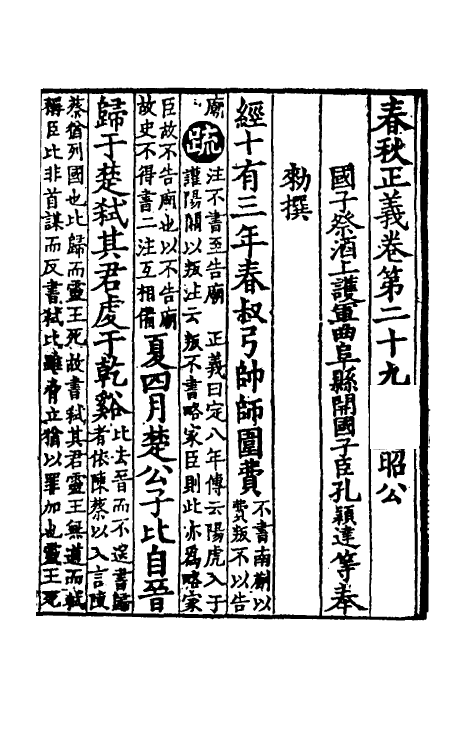 春秋正義卷第二十九　昭公
國子祭酒上護軍曲阜縣開國子臣孔穎達等奉
勑撰
經十有三年春叔弓帥師圍費不書南蒯以
費叛不以告
廟疏注不書至告廟　正義曰定八年傳云陽虎入于
讙陽關以叛注云叛不書略家臣則此亦為略家
臣故不告廟也以不告廟
故史不得書二注互相備夏四月楚公子比自晉
歸于楚弒其君虔于乾谿比去晉而不送書歸
者依陳蔡以入言陳
蔡猶列國也比歸而靈王死故書弒其君靈王無道而弒
稱臣比非首謀而反書弒比雖脅立猶以罪加也靈王死